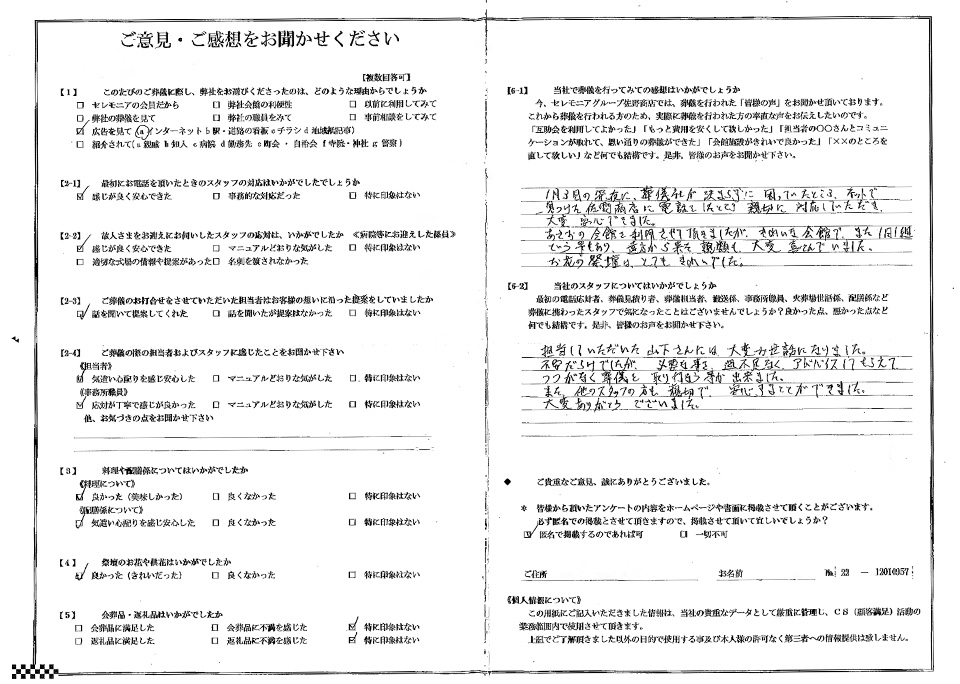 ご意見・ご感想をお聞かせください
【複数回答可】
【1】 このたびのご葬儀に際し、弊社をお選びくださったのは、どのような理由からでしょうか
□ セレモニアの会員だから □ 弊社会館の利便性 □ 以前に利用してみて
□ 弊社の葬儀を見て □ 弊社の職員をみて □ 事前相談をしてみて
☑ 広告を見て(a インターネット b 駅・道路の看板 c チラシ d 地域雑誌記事)
□ 紹介されて(a 親戚 b 知人 c 病院 d 勤務先 e 町会・自治会 f 寺院・神社 g 警察)
【2-1】 最初にお電話を頂いたときのスタッフの対応はいかがでしたでしょうか
☑ 感じが良く安心できた □ 事務的な対応だった □ 特に印象はない
【2-2】 故人さまをお迎えにお伺いしたスタッフの応対は、いかがでしたか ≪病院等にお迎えした係員≫
☑ 感じが良く安心できた □ マニュアルどおりな気がした □ 特に印象はない
□ 適切な式場の情報や提案があった □ 名刺を渡されなかった
【2-3】 ご葬儀のお打合せをさせていただいた担当者はお客様の想いに沿った提案をしていましたか
☑ 話を聞いて提案してくれた □ 話を聞いたが提案はなかった □ 特に印象はない
【2-4】 ご葬儀の際の担当者およびスタッフに感じたことをお聞かせ下さい
≪担当者≫
☑ 気遣い心配りを感じ安心した □ マニュアルどおりな気がした □ 特に印象はない
≪事務所職員≫
☑ 応対が丁寧で感じが良かった □ マニュアルどおりな気がした □ 特に印象はない
他、お気づきの点をお聞かせ下さい
【3】 料理や配膳係についてはいかがでしたか
≪料理について≫
☑ 良かった(美味しかった) □ 良くなかった □ 特に印象はない
≪配膳係について≫
☑ 気遣い心配りを感じ安心した □ 良くなかった □ 特に印象はない
【4】 祭壇のお花や供花はいかがでしたか
☑ 良かった(きれいだった) □ 良くなかった □ 特に印象はない
【5】 会葬品・返礼品はいかがでしたか
□ 会葬品に満足した □ 会葬品に不満を感じた ☑ 特に印象はない
□ 返礼品に満足した □ 返礼品に不満を感じた ☑ 特に印象はない
【6-1】 当社で葬儀を行ってみての感想はいかがでしょうか
今、セレモニアグループ佐野商店では、葬儀を行われた「皆様の声」をお聞かせ頂いております。
これから葬儀を行われる方のため、実際に葬儀を行われた方の率直な声をお伝えしたいのです。
「互助会を利用してよかった」「もっと費用を安くして欲しかった」「担当者の〇〇さんとコミュニ
ケーションが取れて、思い通りの葬儀ができた」「会館施設がきれいで良かった」「××のところを
直して欲しい」など何でも結構です。是非、皆様のお声をお聞かせ下さい。
1月3日の深夜に、葬儀社が決まらずに困っていたところ、ネットで
見つけた佐野商店に電話をしたところ親切に対応していただき、
大変安心できました。
あさおの会館を利用させて頂きましたが、きれいな会館で、また1日1組
という事もあり、遠方から来た親類も、大変喜んでいました。
お花の祭壇は、とてもきれいでした。
【6-2】 当社のスタッフについてはいかがでしょうか
最初の電話応対者、葬儀見積り者、葬儀担当者、搬送係、事務所職員、火葬場世話係、配膳係など
葬儀に携わったスタッフで気になったことはございませんでしょうか？良かった点、悪かった点など
何でも結構です。是非、皆様のお声をお聞かせ下さい。
担当していただいた山下さんには大変お世話になりました。
不安だらけでしたが、必要な事を過不足なく、アドバイスしてもらえて
つつがなく葬儀を取り行なう事が出来ました。
また、他のスタッフの方も親切で、安心することができました。
大変ありがとうございました。
◆ ご貴重なご意見、誠にありがとうございました。
＊ 皆様から頂いたアンケートの内容をホームページや書面に掲載させて頂くことがございます。
必ず匿名での掲載とさせて頂きますので、掲載させて頂いて宜しいでしょうか？
☑ 匿名で掲載するのであれば可 □ 一切不可
ご住所 お名前 № 22 － 12010957
≪個人情報について≫
この用紙にご記入いただきました情報は、当社の貴重なデータとして厳重に管理し、CS(顧客満足)活動の
業務範囲内で使用させて頂きます。
上記でご了解頂きました以外の目的で使用する事及び本人様の許可なく第三者への情報提供は致しません。